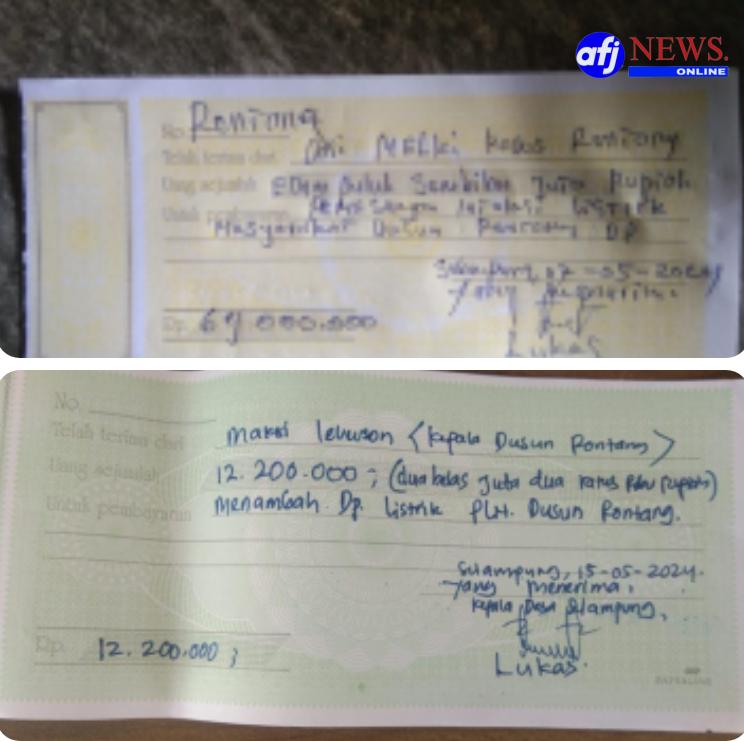 afj NEWS.
ONLINE
No. Rontang
Telah terima dari MELKi Kadus Rontang
Uang sejumlah Enam puluh Sembilan Juta Rupiah
Untuk pembayaran Listrik
Masyarakat Dusun Rontang DP
07-05-2024
Yang
Rp. 69 000.000
Lukas
No.
Telah terima dari (Kepala Dusun Rontang)
Uang sejumlah 12.200.000; (dua belas Juta dua ratus Ribu Rupiah)
Untuk pembayaran Menambah Dp. listrik PLN. Dusun Rontang.
15-05-2024.
Yang menerima,
Kepala Desa Silampung,
Rp. 12.200.000;
Lukas.
PAPERLINE